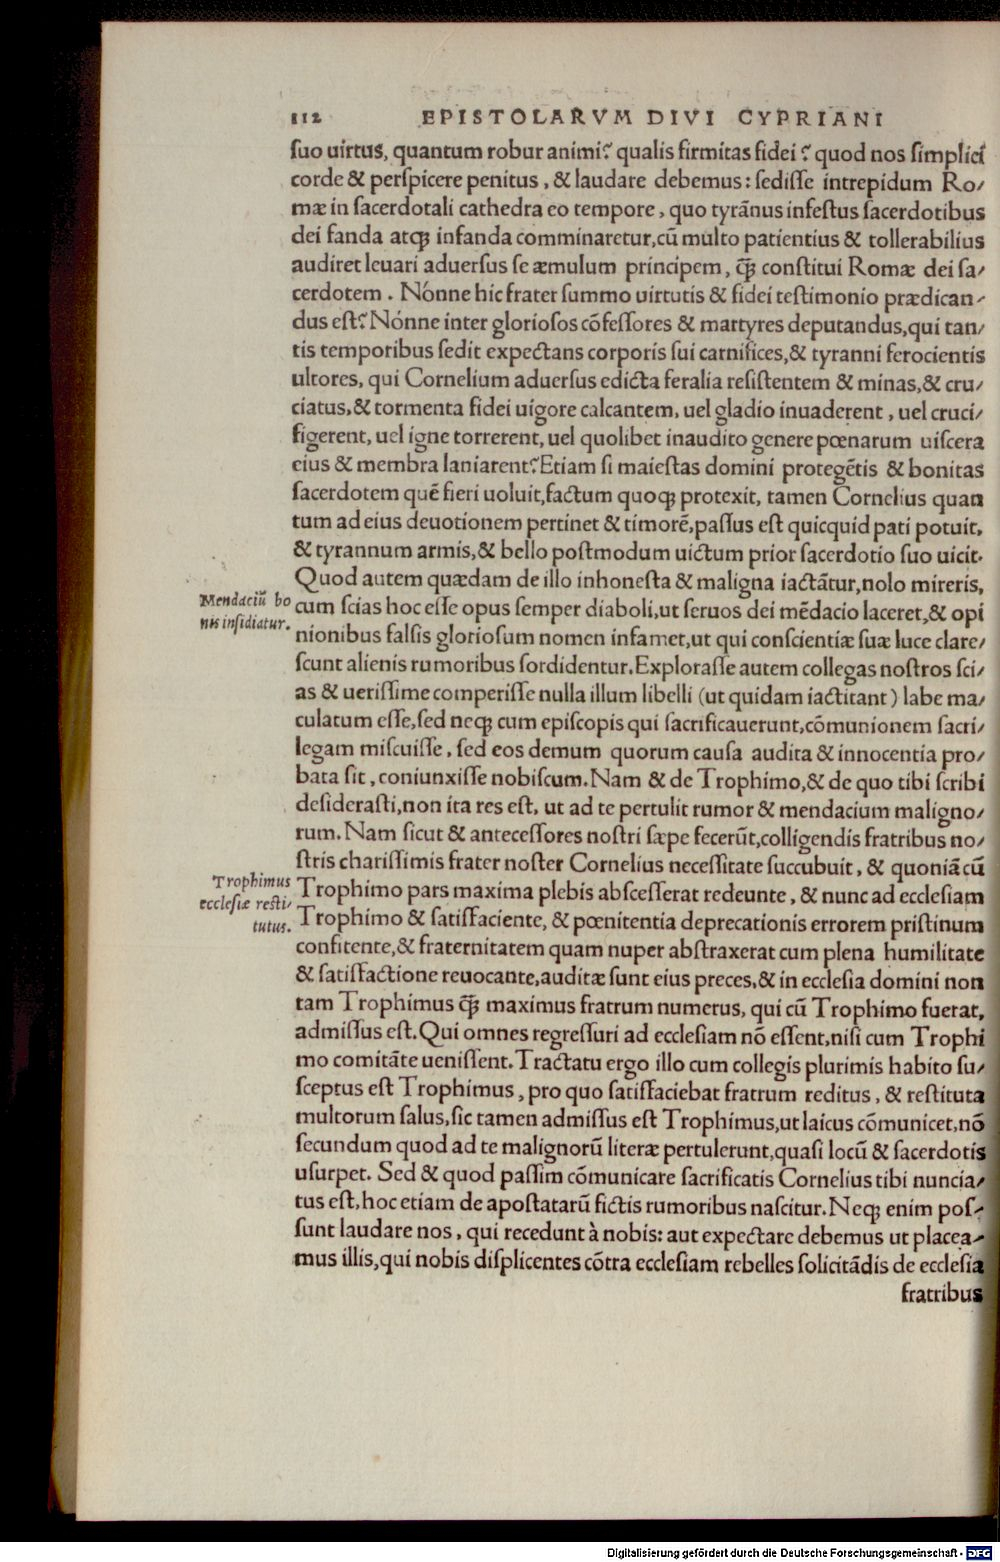 112 EPISTOLARVM DIVI CYPRIANI
ſuo uirtus, quantum robur animi? qualis firmitas fidei? quod nos ſimplici
corde & perſpicere penitus, & laudare debemus: ſediſſe intrepidum Ro⸗
mæ in ſacerdotali cathedra eo tempore, quo tyrãnus infeſtus ſacerdotibus
dei fanda atq; infanda comminaretur, cũ multo patientius & tollerabilius
audiret leuari aduerſus ſe æmulum principem, q̃; conſtitui Romæ dei ſa⸗
cerdotem. Nónne hic frater ſummo uirtutis & fidei teſtimonio prædican⸗
dus eſt? Nónne inter glorioſos cõfeſſores & martyres deputandus, qui tan⸗
tis temporibus ſedit expectans corporis ſui carnifices, & tyranni ferocientis
ultores, qui Cornelium aduerſus edicta feralia reſiſtentem & minas, & cru⸗
ciatus, & tormenta fidei uigore calcantem, uel gladio inuaderent, uel cruci⸗
figerent, uel igne torrerent, uel quolibet inaudito genere pœnarum uiſcera
eius & membra laniarent? Etiam ſi maieſtas domini protegẽtis & bonitas
ſacerdotem quẽ fieri uoluit, factum quoq; protexit, tamen Cornelius quan
tum ad eius deuotionem pertinet & timorẽ, paſſus eſt quicquid pati potuit,
& tyrannum armis, & bello poſtmodum uictum prior ſacerdotio ſuo uicit.
Quod autem quædam de illo inhoneſta & maligna iactãtur, nolo mireris,
Mendaciũ bo
nis inſidiatur.
cum ſcias hoc eſſe opus ſemper diaboli, ut ſeruos dei mẽdacio laceret, & opi
nionibus falſis glorioſum nomen infamet, ut qui conſcientiæ ſuæ luce clare⸗
ſcunt alienis rumoribus ſordidentur. Exploraſſe autem collegas noſtros ſci⸗
as & ueriſſime comperiſſe nulla illum libelli (ut quidam iactitant) labe ma⸗
culatum eſſe, ſed neq; cum epiſcopis qui ſacrificauerunt, cõmunionem ſacri⸗
legam miſcuiſſe, ſed eos demum quorum cauſa audita & innocentia pro⸗
bata ſit, coniunxiſſe nobiſcum. Nam & de Trophimo, & de quo tibi ſcribi
deſideraſti, non ita res eſt, ut ad te pertulit rumor & mendacium maligno⸗
rum. Nam ſicut & anteceſſores noſtri ſæpe fecerũt, colligendis fratribus no⸗
ſtris chariſſimis frater noſter Cornelius neceſſitate ſuccubuit, & quoniã cũ
Trophimus
ecclesiæ resti⸗
tutus.
Trophimo pars maxima plebis abſceſſerat redeunte, & nunc ad eccleſiam
Trophimo & ſatisfaciente, & pœnitentia deprecationis errorem priſtinum
confitente, & fraternitatem quam nuper abſtraxerat cum plena humilitate
& ſatisfactione reuocante, auditæ ſunt eius preces, & in eccleſia domini non
tam Trophimus q̃; maximus fratrum numerus, qui cũ Trophimo fuerat,
admiſſus eſt. Qui omnes regreſſuri ad eccleſiam nõ eſſent, niſi cum Trophi
mo comitãte ueniſſent. Tractatu ergo illo cum collegis plurimis habito ſu⸗
ſceptus eſt Trophimus, pro quo ſatisfaciebat fratrum reditus, & reſtituta
multorum ſalus, ſic tamen admiſſus eſt Trophimus, ut laicus cõmunicet, nõ
ſecundum quod ad te malignorũ literæ pertulerunt, quaſi locũ & ſacerdotis
uſurpet. Sed & quod paſſim cõmunicare ſacrificatis Cornelius tibi nuncia⸗
tus eſt, hoc etiam de apoſtatarũ fictis rumoribus naſcitur. Neq; enim poſ⸗
ſunt laudare nos, qui recedunt à nobis: aut expectare debemus ut placea⸗
mus illis, qui nobis diſplicentes cõtra eccleſiam rebelles ſolicitãdis de eccleſia
fratribus
Digitalisierung gefördert durch die Deutsche Forschungsgemeinschaft - DFG